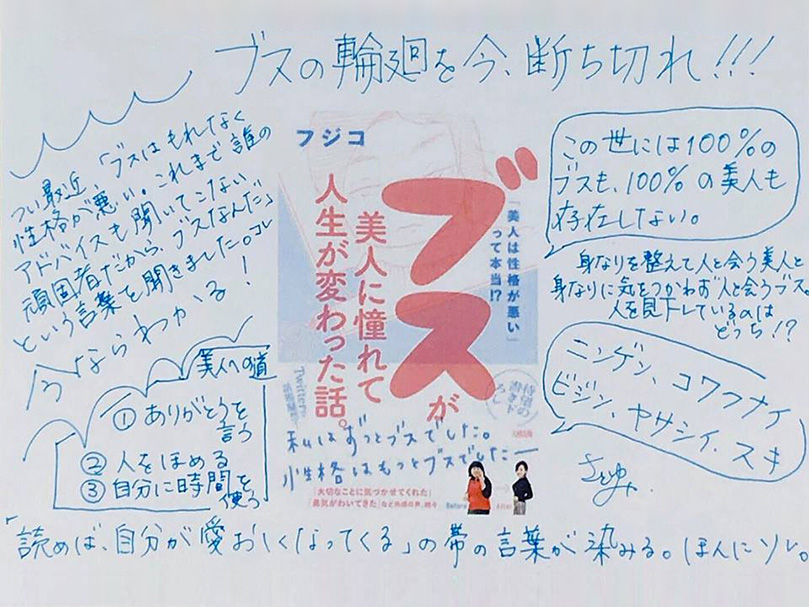 ブスの輪廻を今、断ち切れ!!!
つい最近、「ブスはもれなく
性格が悪い。これまで誰の
アドバイスも聞いてこない
頑固者だから、ブスなんだ」
という言葉を聞きました。コレ
今ならわかる!
美人への道
① ありがとうを
言う
② 人をほめる
③ 自分に時間を
使う
フジコ
「美人は性格が悪い」
って本当!?
ブスが
美人に憧れて
人生が変わった話。
Twitterで
話題騒然
待望の
書き下
ろし
私はずっとブスでした。
性格はもっとブスでした―
「大切なことに気づかせてくれた」
「勇気がわいてきた」など共感の声、続々
Before
この世には100%の
ブスも、100%の美人も
存在しない。
身なりを整えて人と会う美人と
身なりに気をつかわず人と会うブス。
人を見下しているのは
どっち!?
ニンゲン、コワクナイ
ビジン、ヤサシイ、スキ
さとゆみ
「読めば、自分が愛おしくなってくる」の帯の言葉が染みる。ほんにソレ。